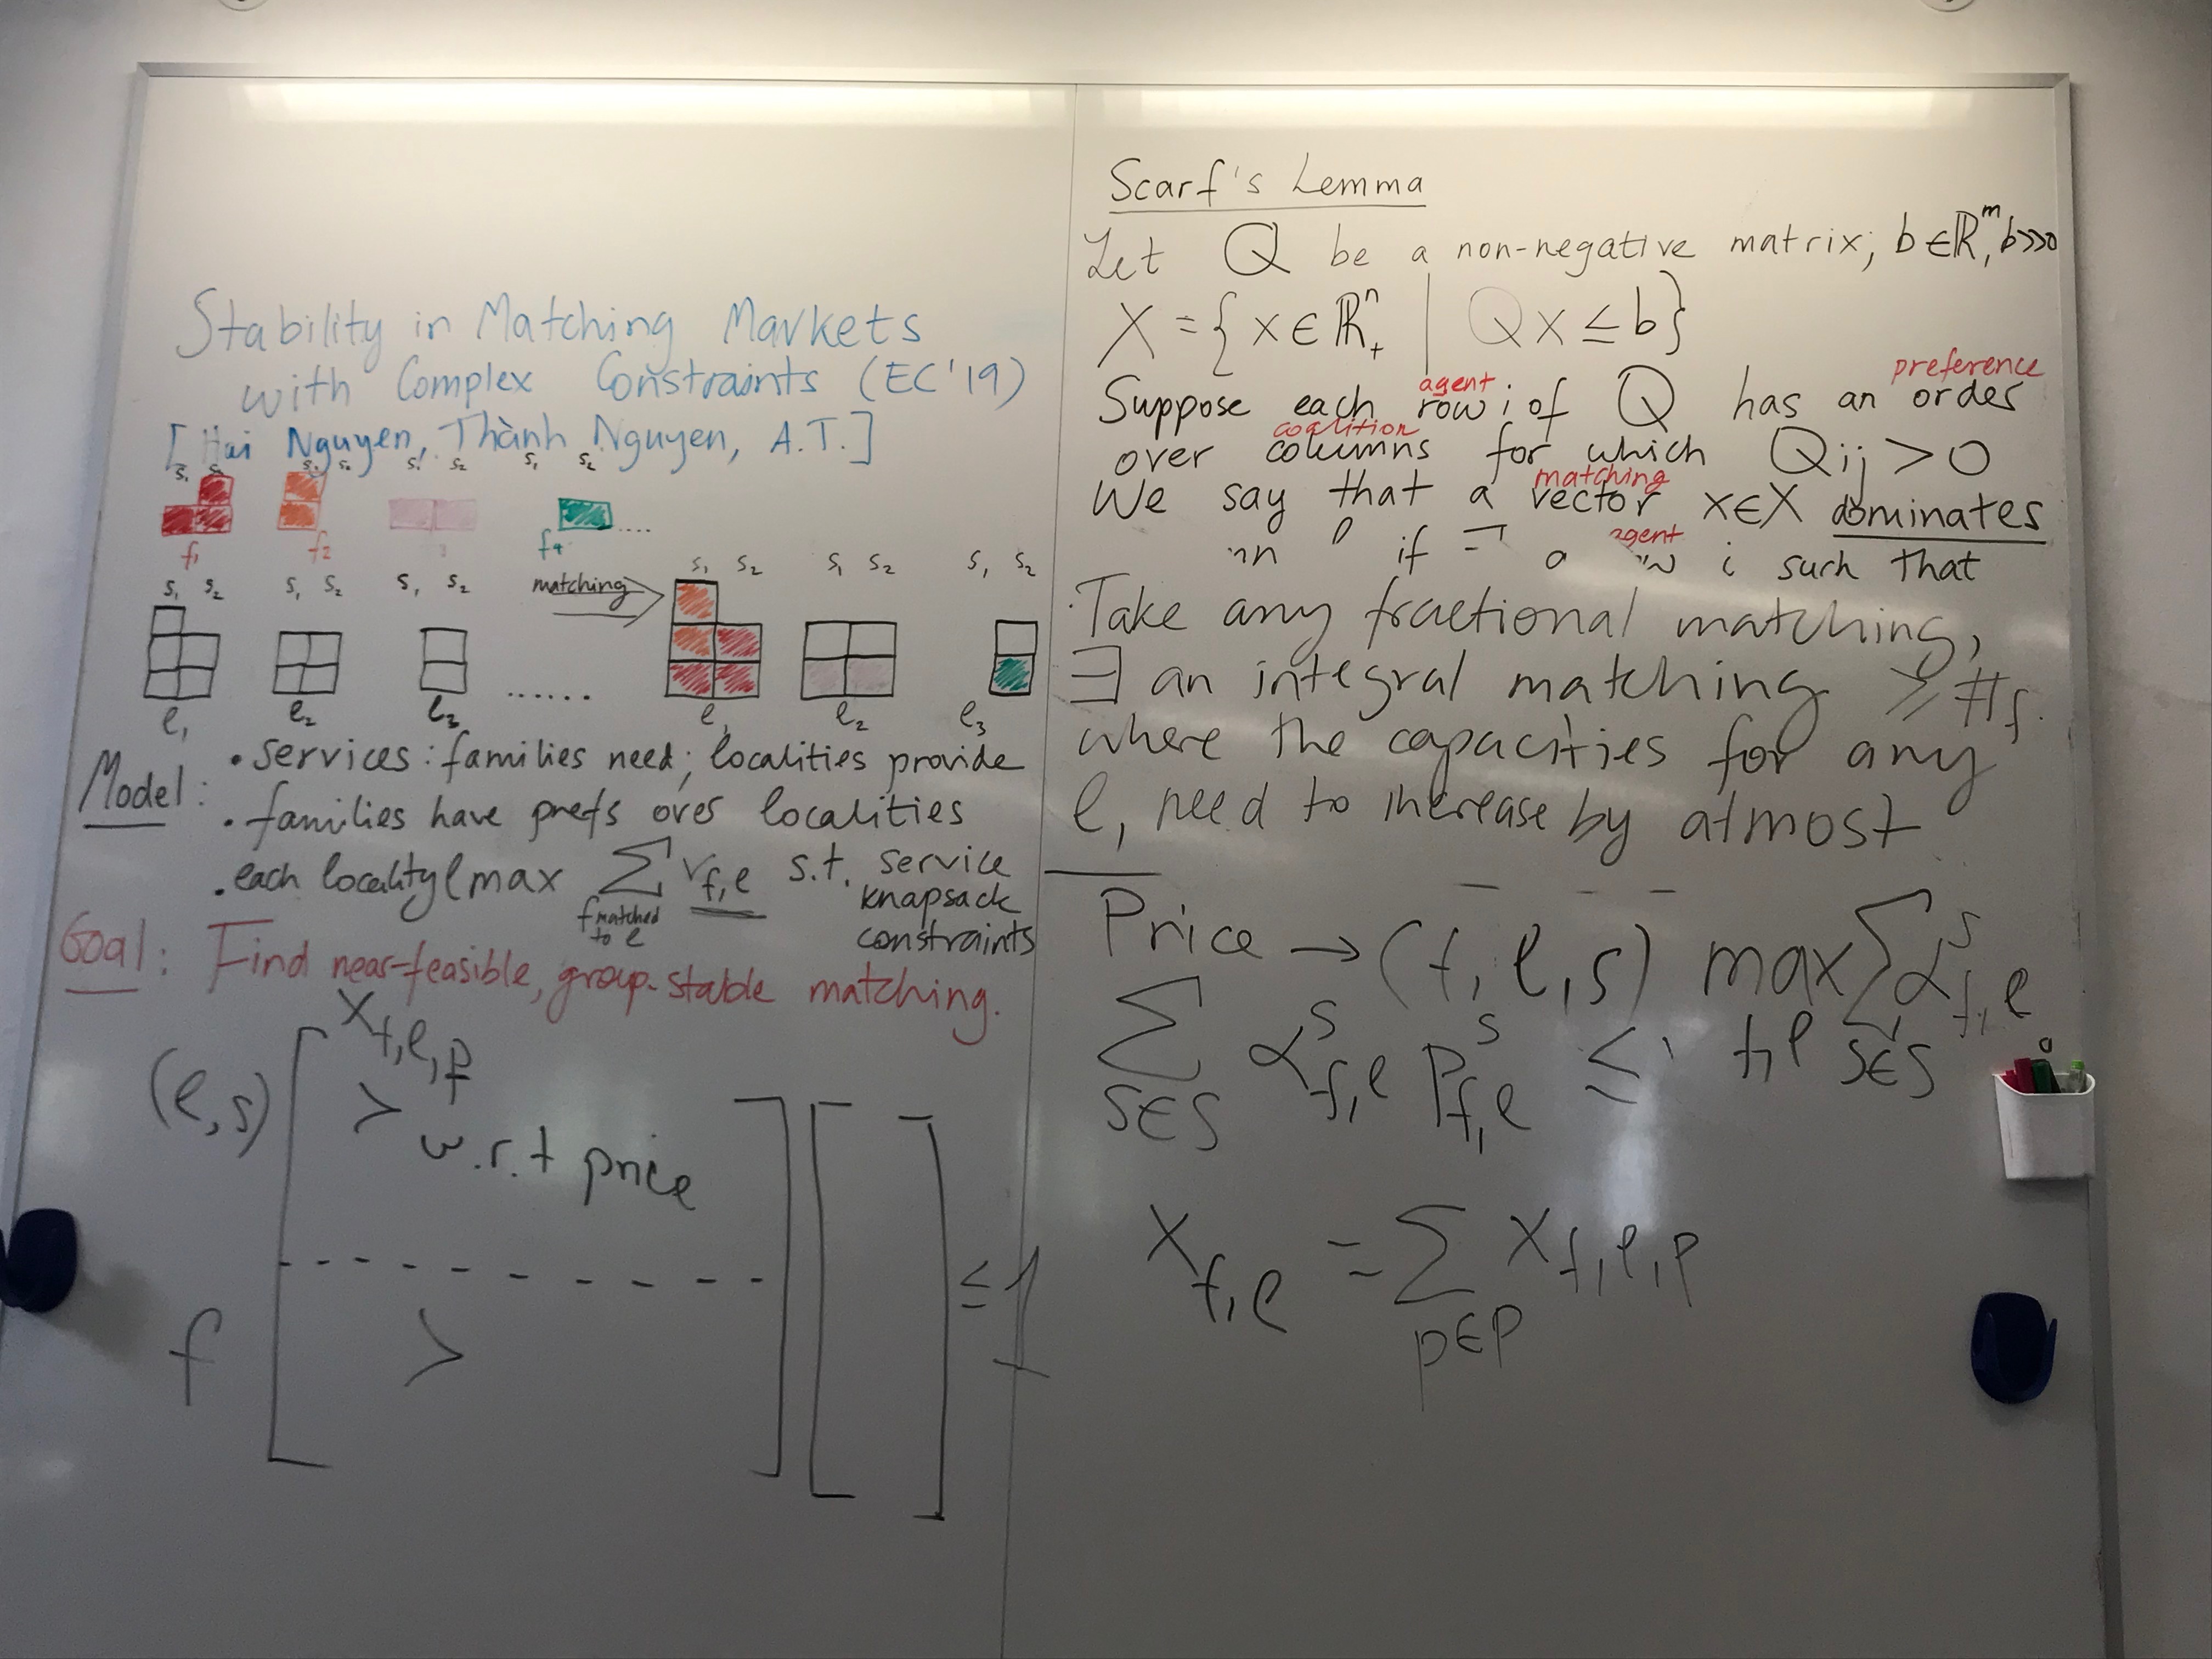 Stability in Matching Markets
with Complex Constraints (EC'19)
[Hai Nguyen, Thành Nguyen, A.T.]
s₁ s₂ s₁ s₂ s₁ s₂ s₁ s₂
f₁ f₂ f₄ ....
s₁ s₂ s₁ s₂ s₁ s₂ matching s₁ s₂ s₁ s₂ s₁ s₂
ℓ₁ ℓ₂ ℓ₃ ...... ℓ₁ ℓ₂ ℓ₃
Model: • services: families need; localities provide
• families have prefs over localities
• each locality ℓ max ∑ v_{f,ℓ} s.t. service
f matched to ℓ
knapsack
constraints
Goal: Find near-feasible, group-stable matching.
x_{f,ℓ,p}
(ℓ,s) > w.r.t price
f >
≤ 1
Scarf's Lemma
Let Q be a non-negative matrix; b∈ℝ^m, b>>0
X = { x∈ℝ₊ⁿ | Qx ≤ b}
agent preference
Suppose each row i of Q has an order
coalition
over columns for which Qij > 0
matching
We say that a vector x∈X dominates
agent
if i such that
Take any fractional matching,
∃ an integral matching
where the capacities for any
ℓ, need to increase by atmost
Price → (f, ℓ, s) max ∑ α^s_{f,ℓ}
s∈S
∑ α^s_{f,ℓ} p^s_{f,ℓ} ≤
s∈S
x_{f,ℓ} = ∑ x_{f,ℓ,p}
p∈P